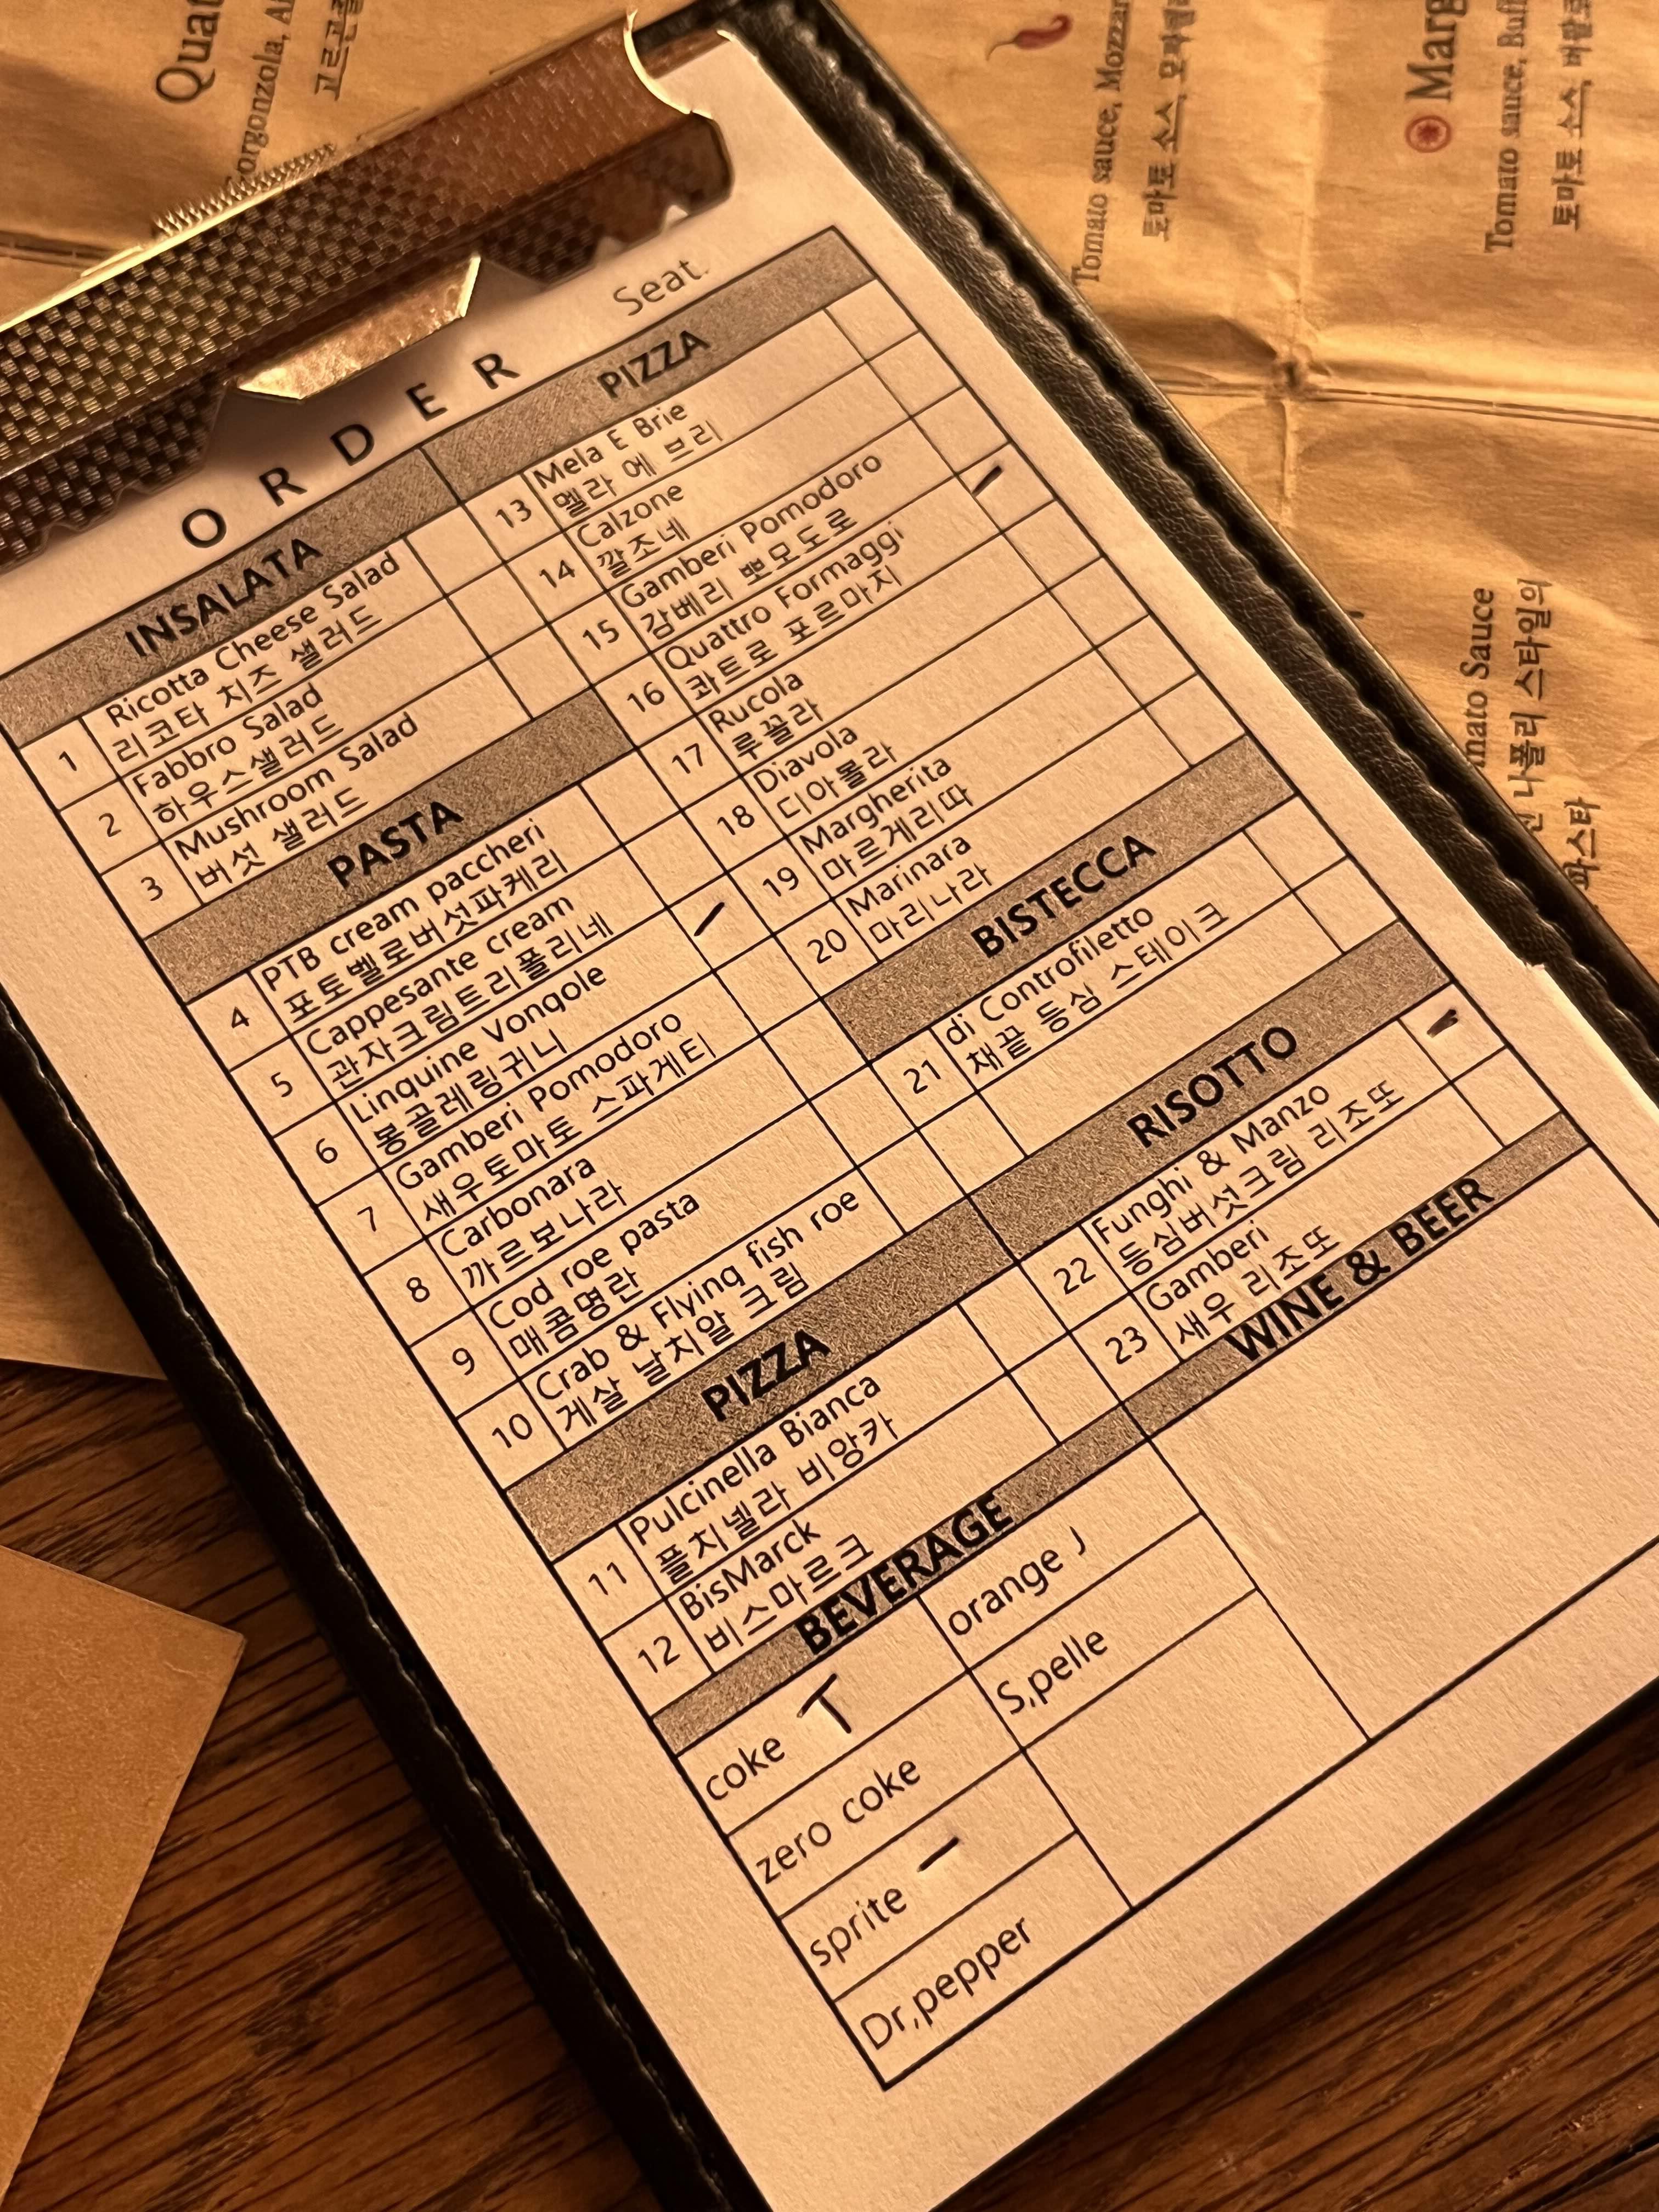 ORDER
Seat.
INSALATA
1 Ricotta Cheese Salad
리코타 치즈 샐러드
2 Fabbro Salad
하우스샐러드
3 Mushroom Salad
버섯 샐러드
PASTA
4 PTB cream paccheri
포토벨로버섯파케리
5 Cappesante cream
관자크림트리폴리네
6 Linguine Vongole
봉골레링귀니
7 Gamberi Pomodoro
새우토마토 스파게티
8 Carbonara
까르보나라
9 Cod roe pasta
매콤명란
10 Crab & Flying fish roe
게살 날치알 크림
PIZZA
11 Pulcinella Bianca
풀치넬라 비앙카
12 BisMarck
비스마르크
BEVERAGE
coke T
zero coke
sprite –
Dr,pepper
orange J
S,pelle
PIZZA
13 Mela E Brie
멜라 에 브리
14 Calzone
깔조네
15 Gamberi Pomodoro
감베리 뽀모도로
16 Quattro Formaggi
콰트로 포르마지
17 Rucola
루꼴라
18 Diavola
디아볼라
19 Margherita
마르게리따
20 Marinara
마리나라
BISTECCA
21 di Controfiletto
채끝 등심 스테이크
RISOTTO
22 Funghi & Manzo
등심버섯크림 리조또
23 Gamberi
새우 리조또
WINE & BEER
Tomato sauce,
토마토 소스,
Tomato sauce,
토마토 소스,
Sauce
나폴리 스타일의
파스타